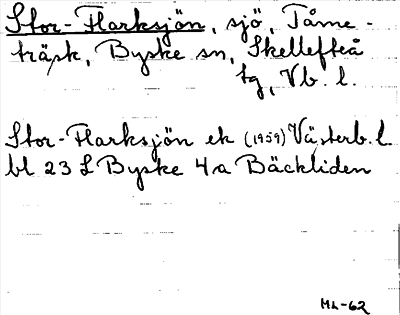 Stor-Flarksjön, sjö, Tåme-
träsk, Byske sn, Skellefteå
tg, Vb. l.
Stor-Flarksjön ek (1959) Västerb. l.
bl 23 L Byske 4a Bäckliden
ML-62